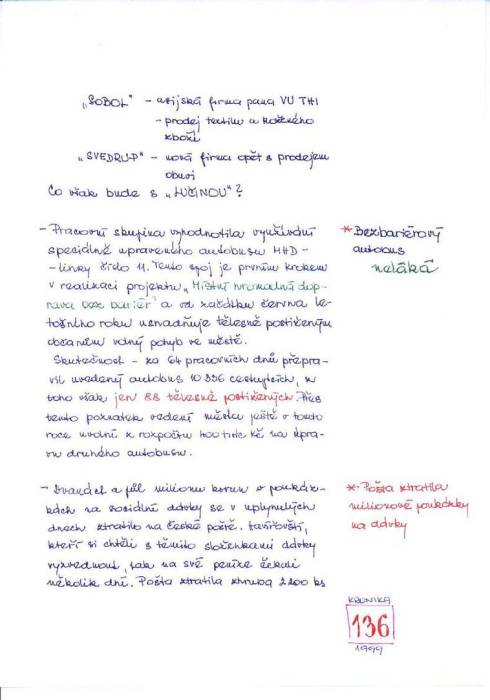 „SOBOL" - asijská firma pana VU THI
- prodej textilu a koženého
zboží
„SVEDRUP" - nová firma opět s prodejem
obuvi
Co však bude s „LUČINOU"?
- Pracovní skupina vyhodnotila využívání
speciálně upraveného autobusu MHD -
- linky číslo 11. Tento spoj je prvním krokem
v realizaci projektu „Místní hromadná dop-
rava bez bariér" a od začátku června le-
tošního roku usnadňuje tělesně postiženým
občanům volný pohyb ve městě.
Skutečnost - za 64 pracovních dnů přepra-
vil uvedený autobus 10 336 cestujících, z
toho však jen 88 tělesně postižených. Přes
tento poznatek vedení města ještě v tomto
roce uvolní z rozpočtu tou na úpra-
vu druhého autobusu.
* Bezbariérový
autobus
neláká
- Dvanáct a půl milionu korun v poukáz-
kách na sociální dávky se v uplynulých
dnech ztratilo na České poště. Havířovští,
kteří si chtěli s těmito složenkami dávky
vyzvednout, tak na své peníze čekali
několik dní. Pošta ztratila zhruba 2 200 ks
* Pošta ztratila
milionové poukázky
na dávky
KRONIKA
136
1999